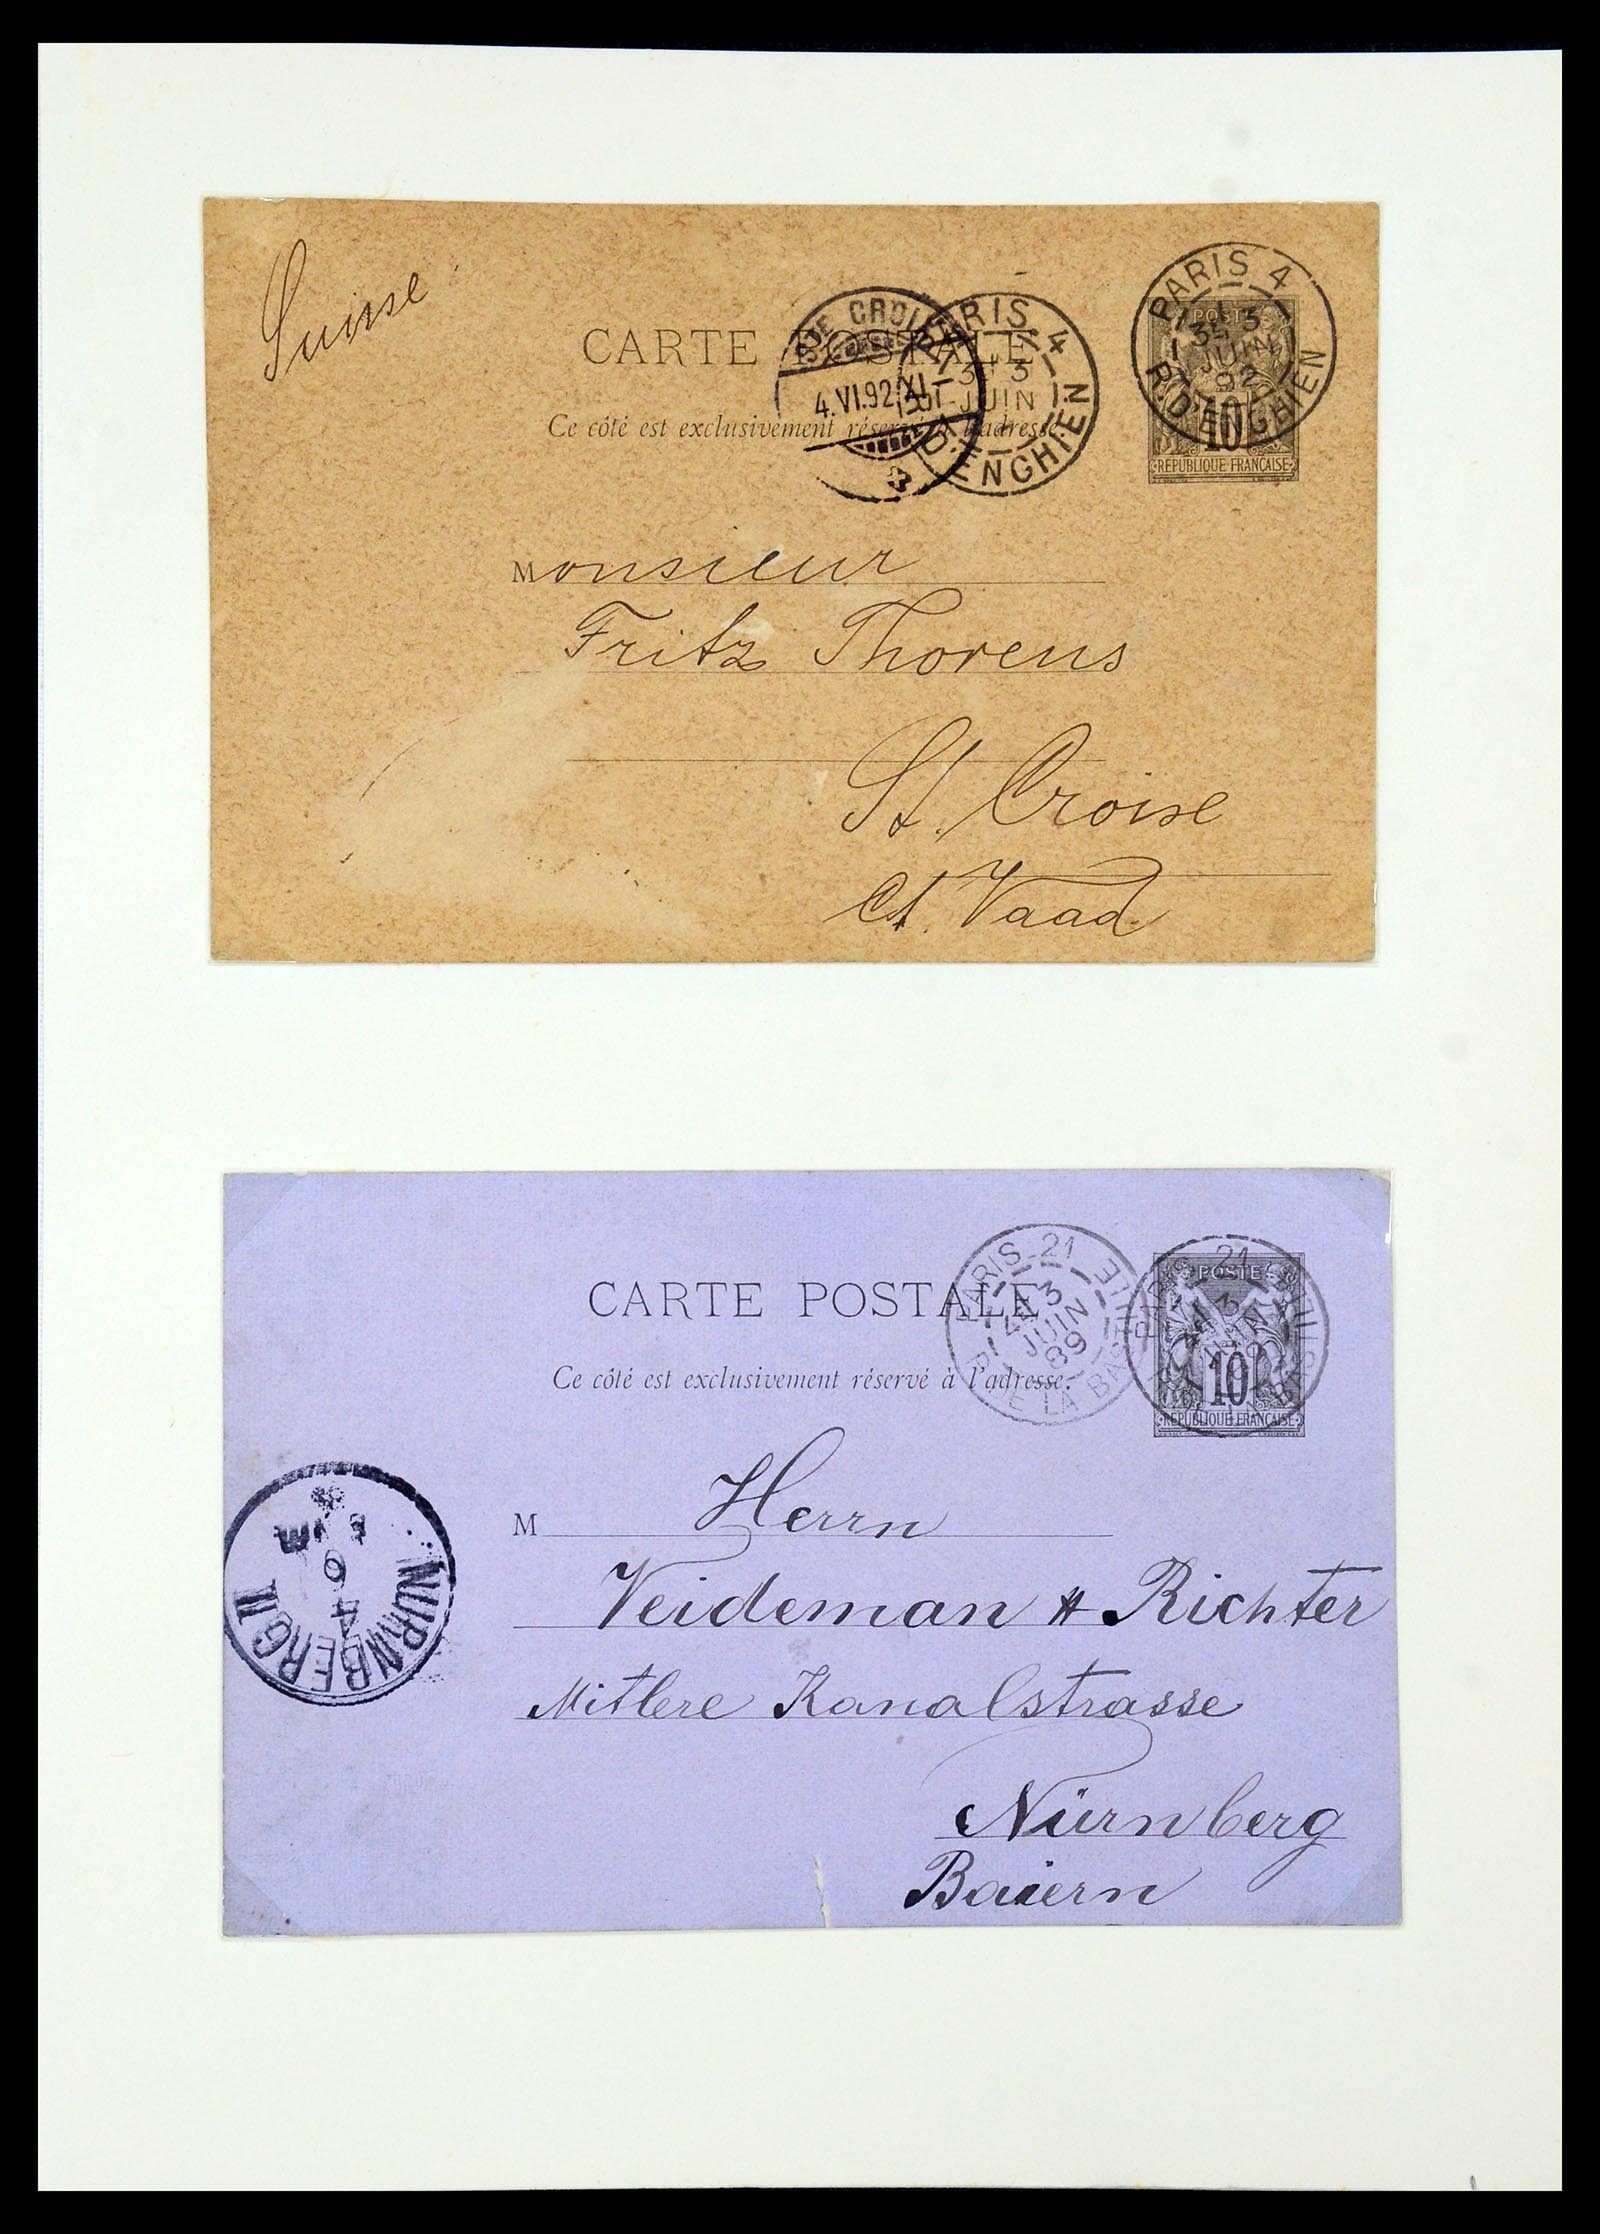 Suisse
CARTE POSTALE
Ce côté est exclusivement réservé à l'adresse.
PARIS 4
1 35 3
JUIN
92
R. D'ENGHIEN
POSTE
10
REPUBLIQUE FRANÇAISE
STE CROIX
4.VI.92 XI
PARIS 4
3
JUIN
D'ENGHIEN
Monsieur
Fritz Thorens
St. Croise
Ct. Vaad.
CARTE POSTALE
Ce côté est exclusivement réservé à l'adresse.
PARIS 21
3
JUIN
89
R. DE LA BASTILLE
POSTE
10
REPUBLIQUE FRANÇAISE
NÜRNBERG II
M Herrn
Veideman & Richter
Mitlere Kanalstrasse
Nürnberg
Baiern